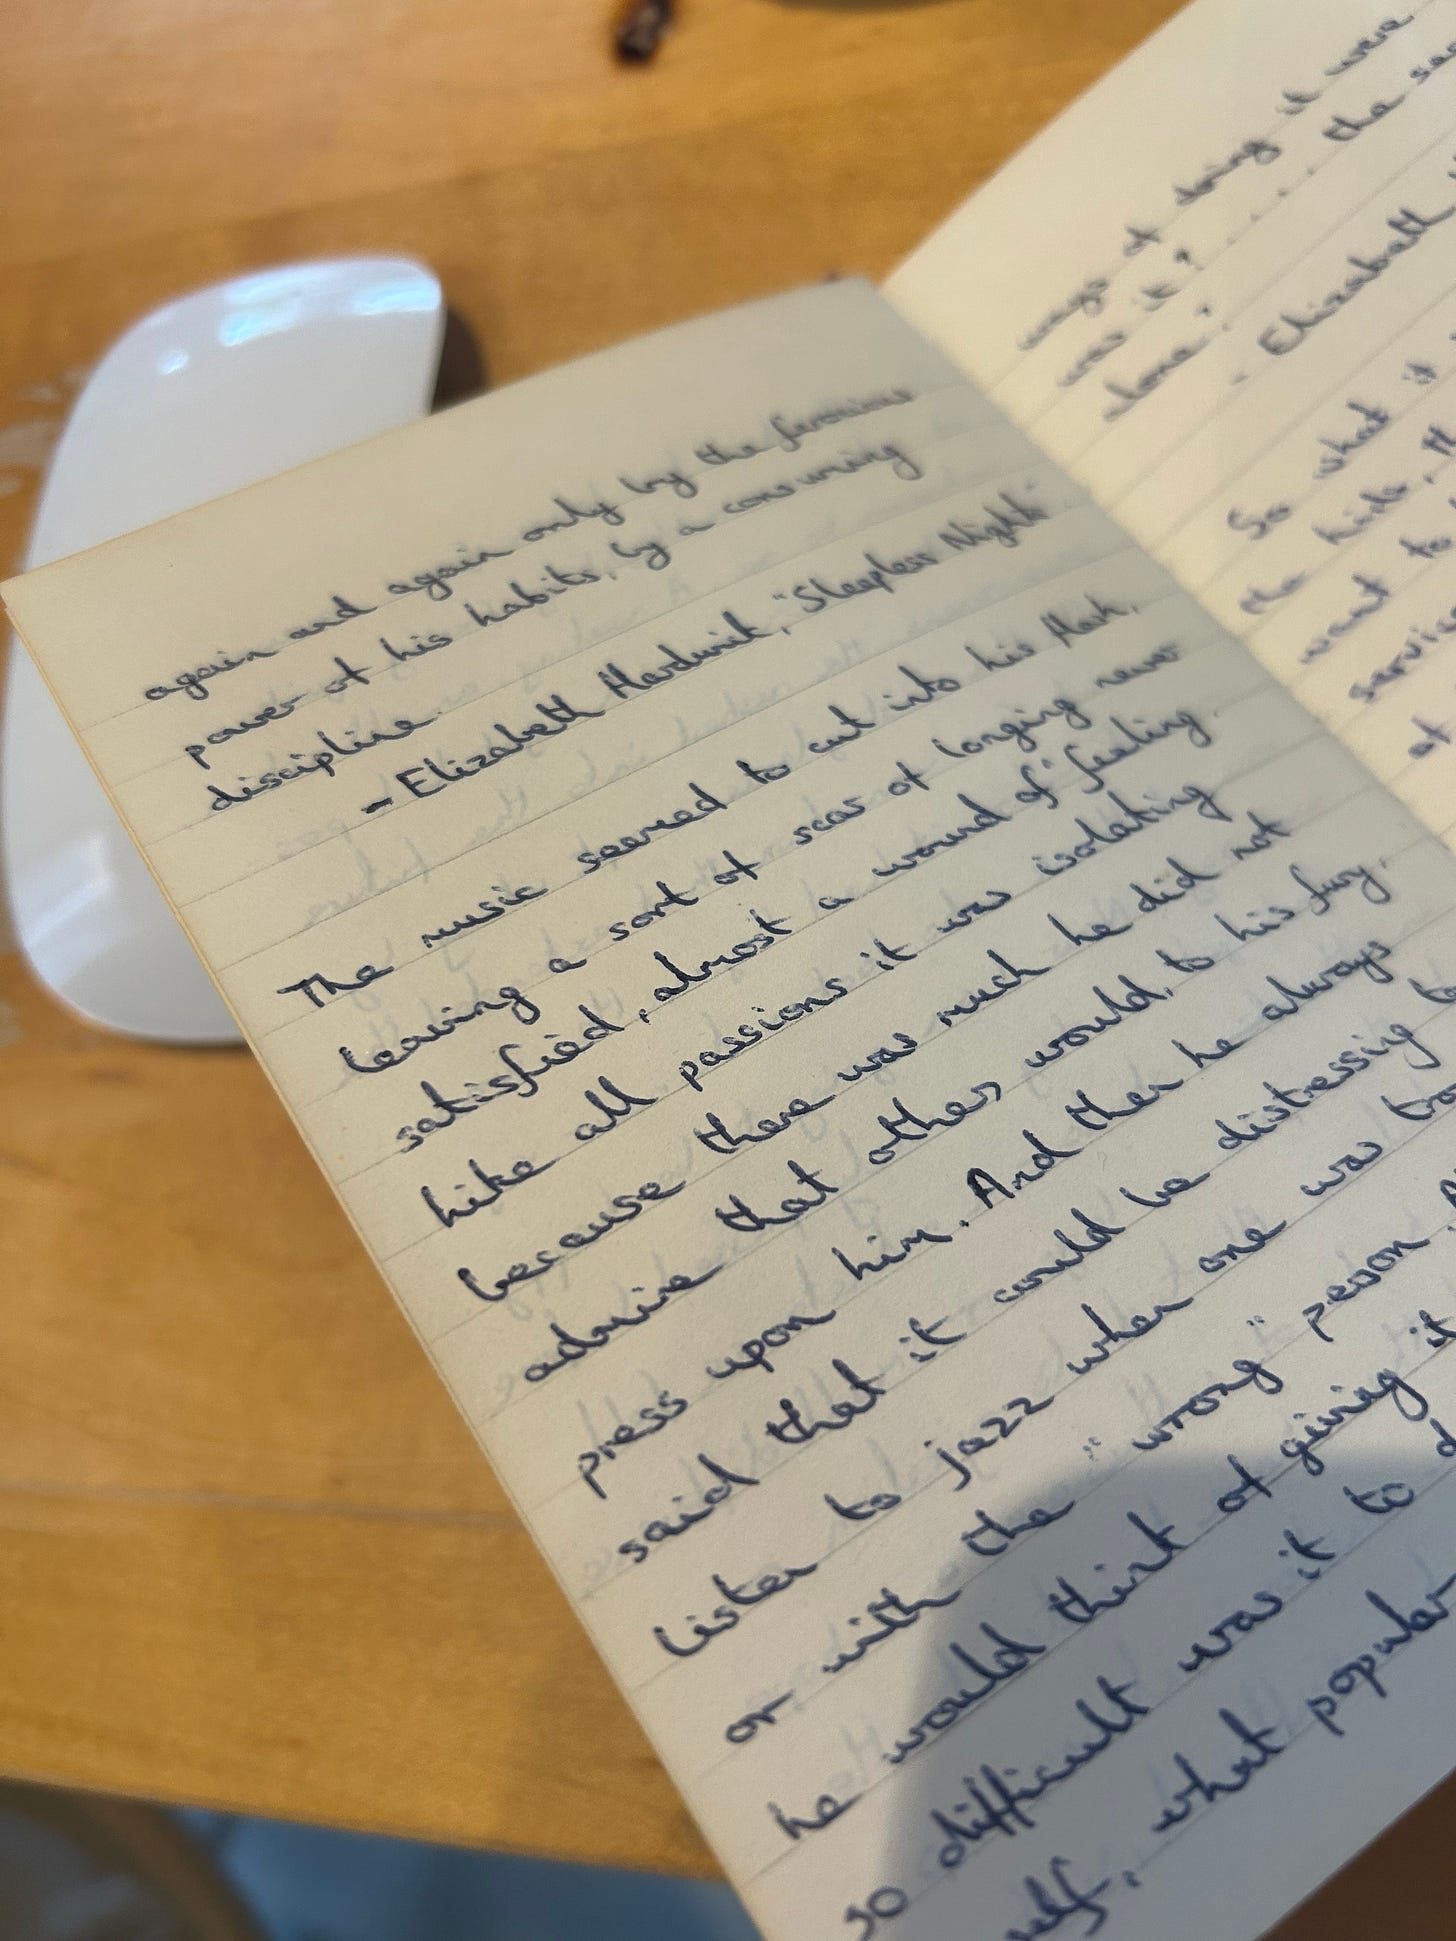 again and again only by the ferocious
power of his habits, by a consuming
discipline.
- Elizabeth Hardwick, "Sleepless Nights"
The music seemed to cut into his flesh,
leaving a sort of scar of longing never
satisfied, almost a wound of feeling.
Like all passions it was isolating
because there was much he did not
admire that others would, to his fury,
press upon him. And then he always
said that it could be distressing to
listen to jazz when one was
or with the "wrong" person.
he would think of giving it
so difficult was it to
self, what popular
ways of doing it were
was it? .... the
alone?
- Elizabeth
So what it
the kids,
want to
of